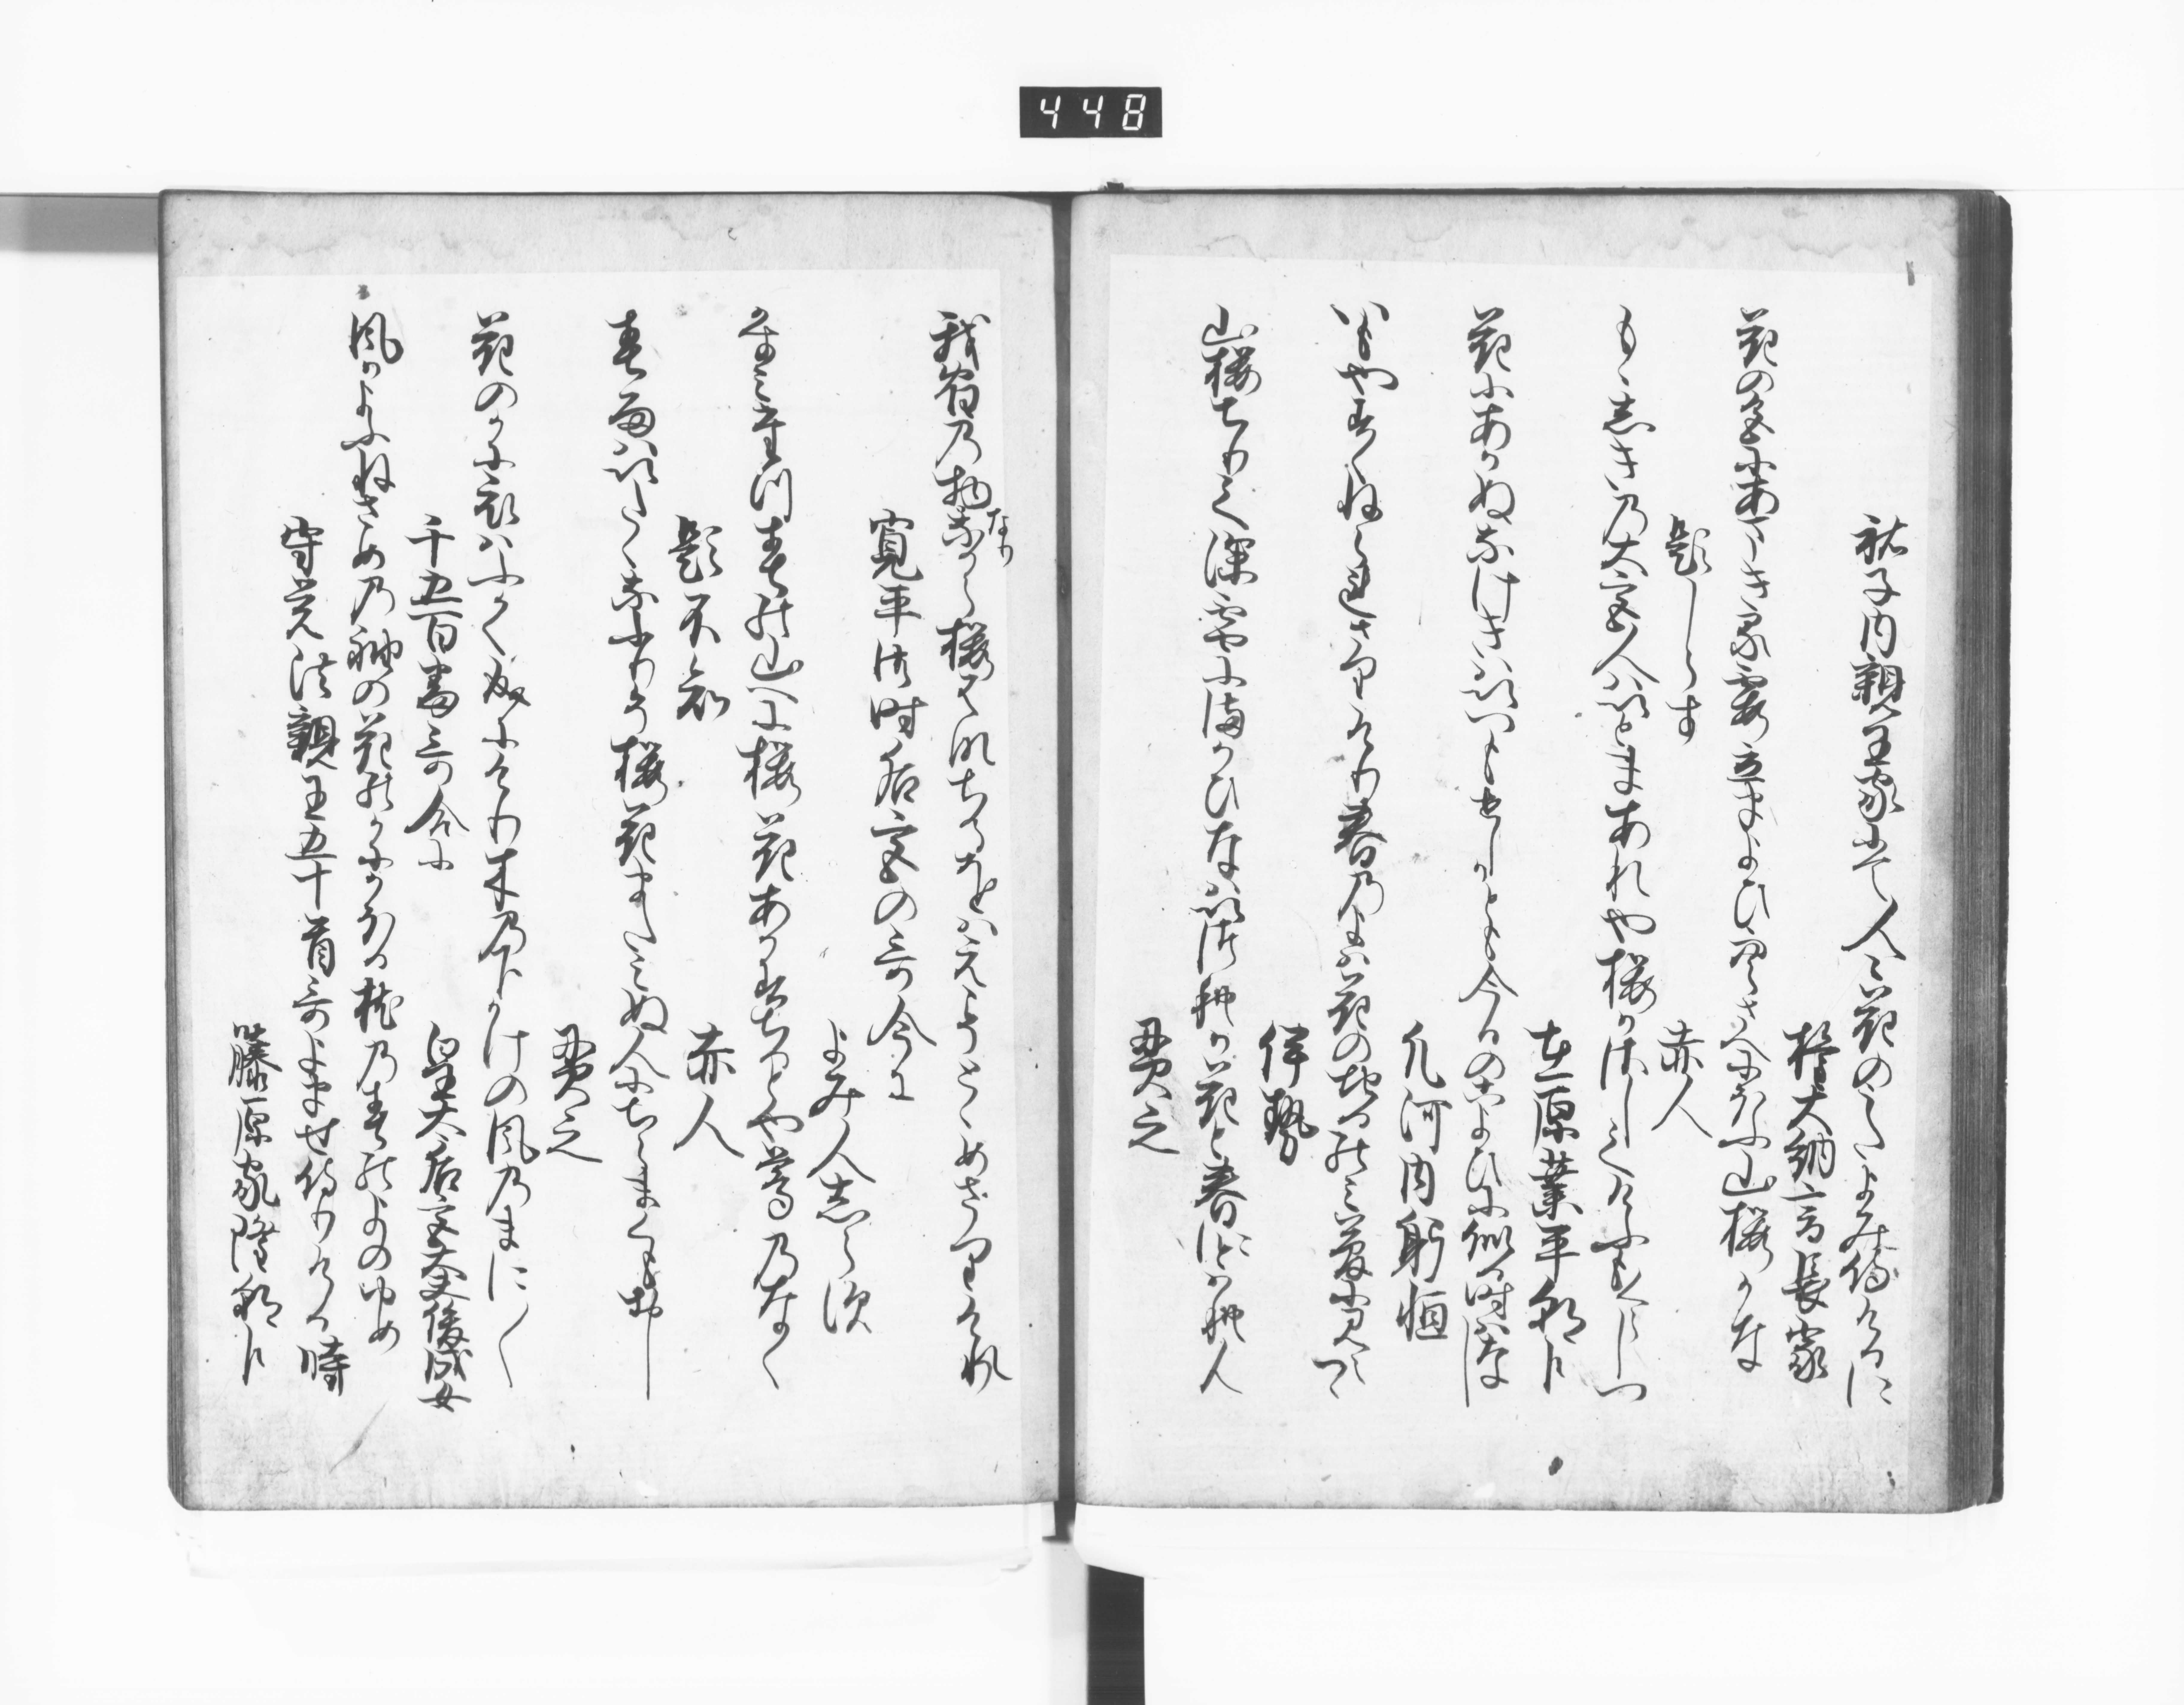 448
祐子内親王家にて人々花のうたよみ侍けるに
権大納言長家
花の色にあまきる霞立まよひ空さへにほふ山桜かな
題しらす
赤人
もゝしきの大宮人はいとまあれや桜かさしてけふもくらしつ
在原業平朝臣
花にあかぬなけきはいつもせしかとも今日のこよひに似る時はなし
凡河内躬恒
いもやすくねられさりけり春のよは花のちるのみ夢に見えつゝ
伊勢
山桜ちりてみ雪にまかひなはいつれか花と春にとはなん
貫之
我宿の物なりなから桜花ちるをはえこそとゝめさりけれ
なり
寛平御時后宮の哥合に
よみ人しらす
かすみたつ春の山へに桜花あかすちるとや鶯のなく
題不知
赤人
春雨はいたくなふりそ桜花またみぬ人にちらまくもおし
貫之
花のかに衣はふかく成にけり木の下かけの風のまに〳〵
千五百番哥合に
皇太后宮大夫俊成女
風かよふねさめの袖の花のかにかほる枕の春のよのゆめ
守覚法親王五十首哥よませ侍りける時
藤原家隆朝臣